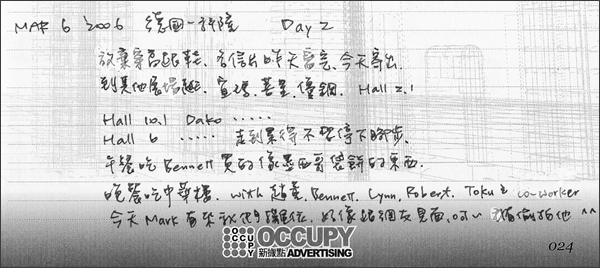 MAR 6 2006 德國-科隆 Day 2
放棄穿高跟鞋. 名信片昨天寫完, 今天寄出.
到其他展場逛. 宜鴻. 菩星. 優鋼. Hall 2.1
Hall 10.1 Dako ·····
Hall 6 ····· 走到累得不想停下腳步.
午餐吃 Bennett 買的像墨西哥袋餅的東西.
晚餐吃中華樓. with 趙董, Bennett, Lynn, Robert, Toku & co-worker
今天 Mark 有來我們攤位, 好像跟網友見面, 偷拍他 ^^
OCCUPY
OCCUPY
新據點 ADVERTISING
024